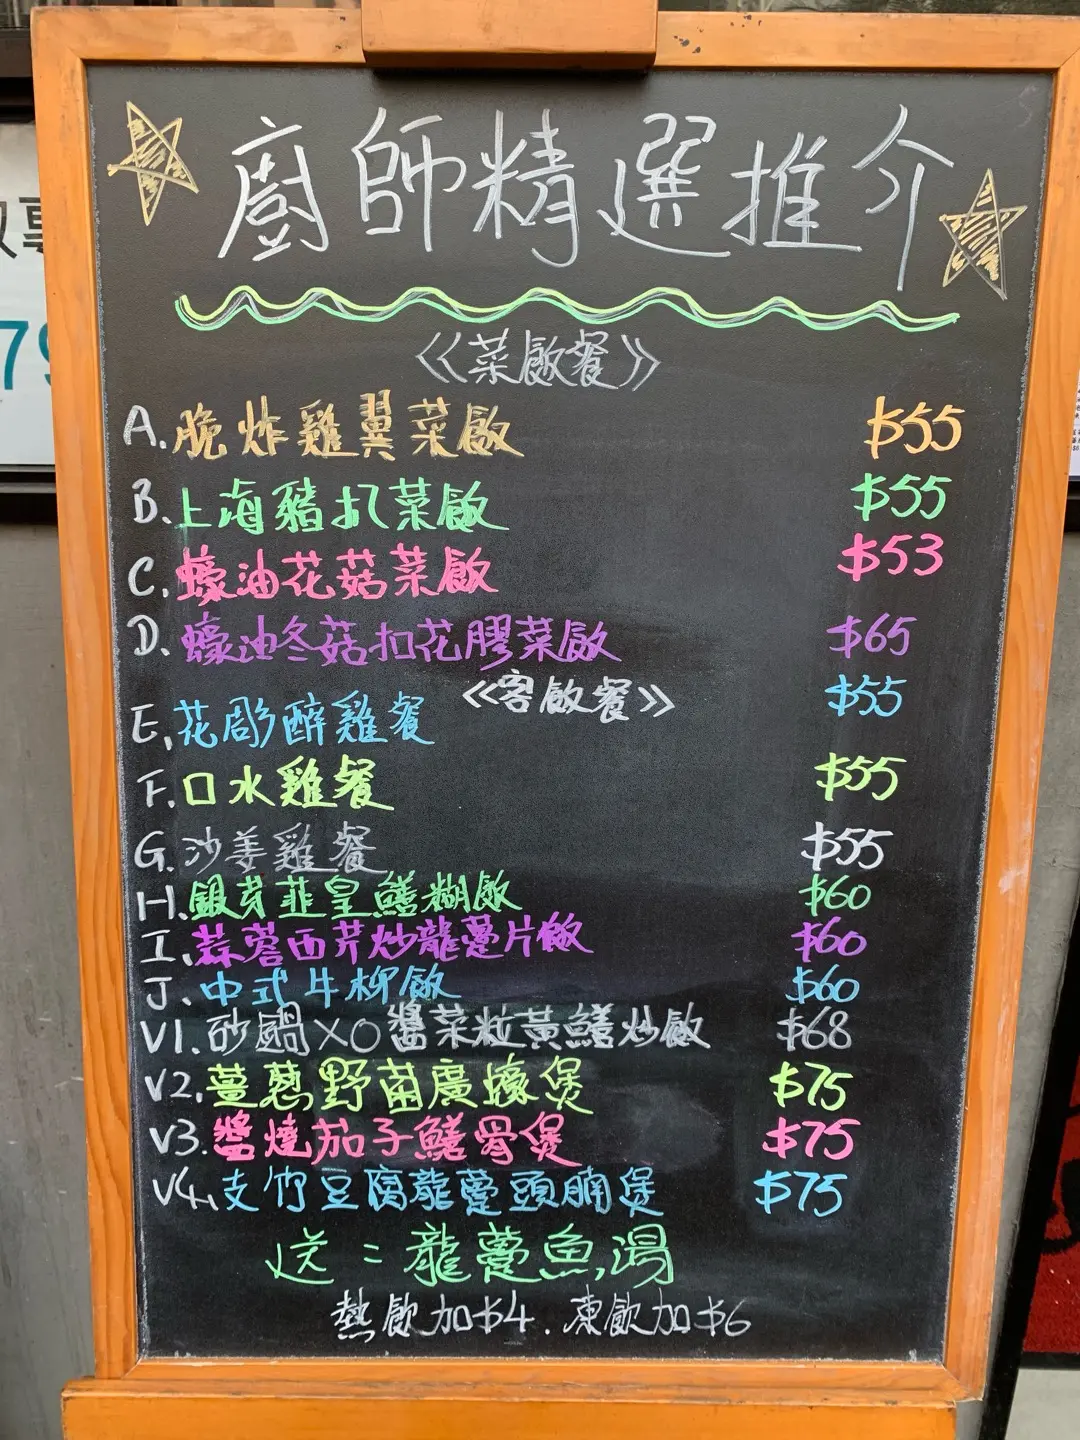 廚師精選推介
《菜飯餐》
A.脆炸雞翼菜飯 $55
B.上海豬扒菜飯 $55
C.蠔油花菇菜飯 $53
D.蠔油冬菇扣花膠菜飯 $65
《客飯餐》
E.花彫醉雞餐 $55
F.口水雞餐 $55
G.沙姜雞餐 $55
H.銀芽韮皇鱔糊飯 $60
I.蒜蓉西芹炒龍躉片飯 $60
J.中式牛柳飯 $60
V1.砂鍋XO醬菜粒黃鱔炒飯 $68
V2.薑蔥野菌廣蠔煲 $75
V3.醬燒茄子鱔骨煲 $75
V4.支竹豆腐龍躉頭腩煲 $75
送:龍躉魚湯
熱飲加$4.凍飲加$6
79